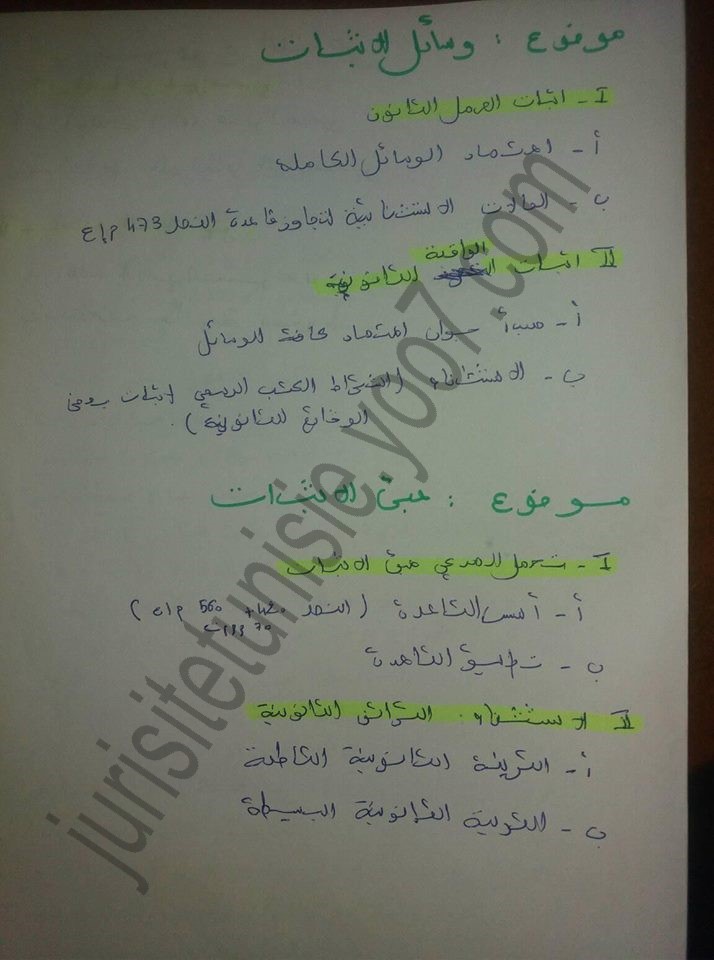 موضوع : وسائل الاثبات
I - اثبات العمل القانوني
أ - اعتماد الوسائل الكاملة
ب - الحالات الاستثنائية لتجاوز قاعدة الفصل 473 م إ ع
الواقعة
II اثبات القانونية
أ - مبدأ جواز اعتماد كافة الوسائل
ب - الاستثناء (اشتراط الكتب الرسمي لإثبات بعض
الوقائع القانونية).
موضوع : عبئ الاثبات
I - تحمل المدعي عبئ الاثبات
أ - أسس القاعدة (الفصل 420 + 560 م إ ع)
70
ب - تطبيق القاعدة
II الاستثناء: القرائن القانونية
أ - القرينة القانونية القاطعة
ب - القرينة القانونية البسيطة
jurisitetunisie.yoo7.com